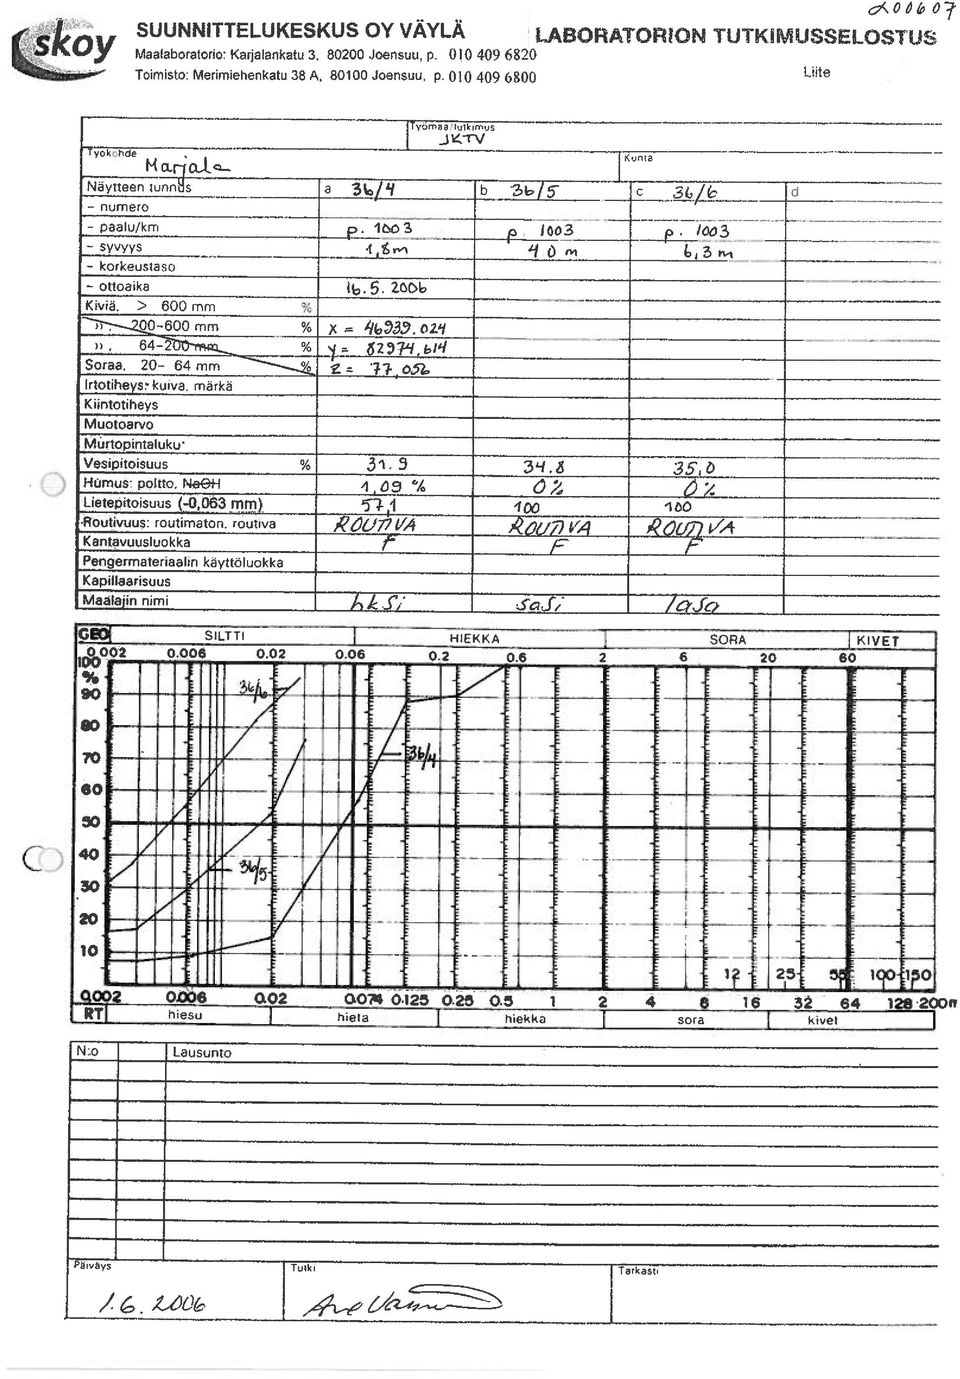 skoy
SUUNNITTELUKESKUS OY VÄYLÄ
LABORATORION TUTKIMUSSELOSTUS
Maalaboratorio: Karjalankatu 3, 80200 Joensuu, p. 010 409 6820
Toimisto: Merimiehenkatu 38 A, 80100 Joensuu, p. 010 409 6800
Liite
Työmaa/tutkimus
JKTV
Työkohde
Marjala
Kunta
Näytteen tunnus a 36/4 b 36/5 c 36/6 d
- numero
- paalu/km p. 1003 p. 1003 p. 1003
- syvyys 1,8m 4 0 m 6,3 m
- korkeustaso
- ottoaika 16.5.2006
Kiviä, > 600 mm %
)) , 200-600 mm % x = 46939.024
)) , 64-200 mm % y = 82974,614
Soraa, 20- 64 mm % z = 77,056
Irtotiheys: kuiva, märkä
Kiintotiheys
Muotoarvo
Murtopintaluku
Vesipitoisuus % 31.9 34.8 35,0
Humus: poltto, NaOH 1,09 % 0 % 0 %
Lietepitoisuus (-0,063 mm) 57,1 100 100
Routivuus: routimaton, routiva ROUTIVA ROUTIVA ROUTIVA
Kantavuusluokka F F F
Pengermateriaalin käyttöluokka
Kapillaarisuus
Maalajin nimi hkSi saSi laSa
GEO SILTTI HIEKKA SORA KIVET
0.002 0.006 0.02 0.06 0.2 0.6 2 6 20 60
100
%
90
36/6
80
70
36/4
60
50
40
36/5
30
20
10
12 25 55 100 150
0.002 0.006 0.02 0.074 0.125 0.25 0.5 1 2 4 8 16 32 64 128 200m
RT hiesu hieta hiekka sora kivet
N:o Lausunto
Päiväys Tutki Tarkasti
1.6.2006